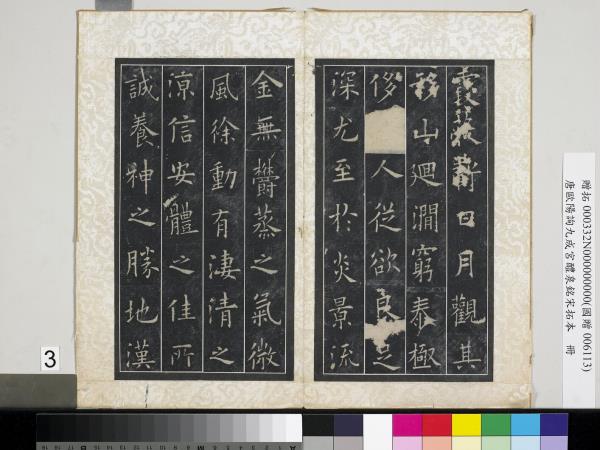 霞蔽虧日月觀其
移山迴澗窮泰極
侈人從欲良足
深尤至於炎景流
金無欝蒸之氣微
風徐動有淒清之
涼信安體之佳所
誠養神之勝地漢
贈拓 000332N000000000(國贈 006113)
唐歐陽詢九成宮醴泉銘宋拓本 冊
3